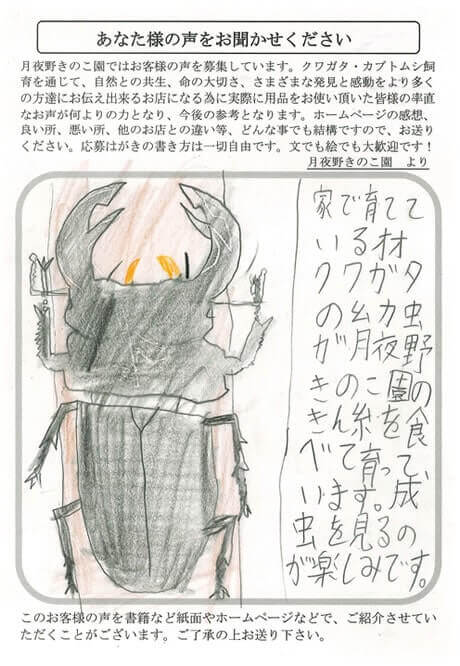 あなた様の声をお聞かせください
月夜野きのこ園ではお客様の声を募集しています。クワガタ・カブトムシ飼
育を通じて、自然との共生、命の大切さ、さまざまな発見と感動をより多く
の方達にお伝え出来るお店になる為に実際に用品をお使い頂いた皆様の率直
なお声が何よりの力となり、今後の参考となります。ホームページの感想、
良い所、悪い所、他のお店との違い等、どんな事でも結構ですので、お送り
ください。応募はがきの書き方は一切自由です。文でも絵でも大歓迎です！
月夜野きのこ園　より
家で育てて
いるオオ
クワガタ
の幼虫
が月夜野
きのこ園の
きん糸を食
べて育って、
います。成
虫を見るの
が楽しみです。
このお客様の声を書籍など紙面やホームページなどで、ご紹介させてい
ただくことがございます。ご了承の上お送り下さい。